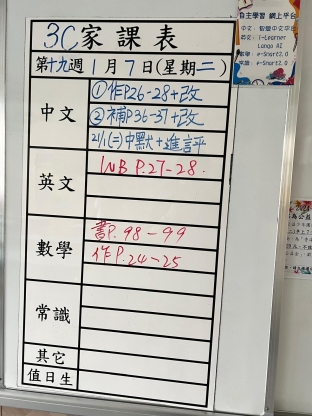 3C家課表
第十九週 1月7日(星期二)
中文
①作P26-28+改
②補P36-37+改
21/1(二)中默+進評
英文
WB P.27-28.
數學
書P.98-99
作P.24-25
常識
其它
值日生
自主學習 網上平台
中文：智愛中文平台
英文：i-Learner
Lango AI
數學：e-Smart2.0
常識：e-Smart2.0